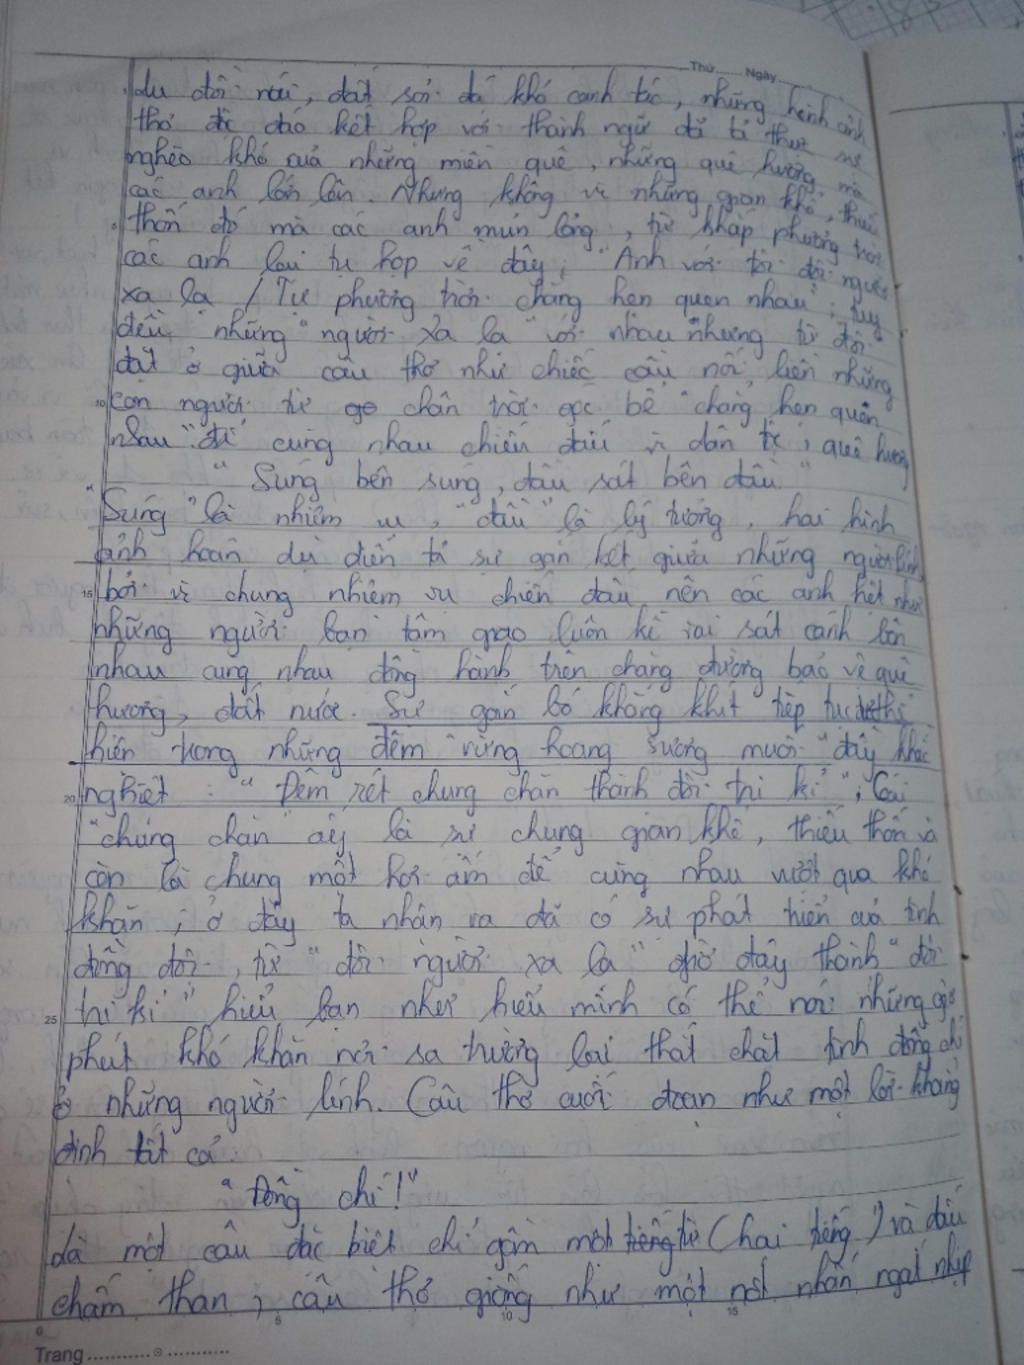 Thứ ........ Ngày
du đồi núi, đất sỏi đá khó canh tác, những hình ảnh
thơ độc đáo kết hợp với thành ngữ đã tả thực sự
nghèo khó của những miền quê, những quê hương mà
các anh lớn lên. Nhưng không vì những gian khổ, thiếu
5 thốn đó mà các anh nhụt lòng, từ khắp phương trời
các anh lại tụ họp về đây, "Anh với tôi đôi người
xa lạ / Tự phương trời chẳng hẹn quen nhau", tuy
đều những "người xa lạ" với nhau nhưng từ đôi
đặt ở giữa câu thơ như chiếc cầu nối, liên những
10 con người từ góc chân trời góc bể "chẳng hẹn quen
nhau" để cùng nhau chiến đấu vì dân tộc, quê hương
"Súng bên súng, đầu sát bên đầu"
"Súng" là nhiệm vụ, "đầu" là lý tưởng, hai hình
ảnh hoán dụ diễn tả sự gắn kết giữa những người lính
15 bởi vì chung nhiệm vụ chiến đấu nên các anh hệt như
những người bạn tâm giao luôn kề vai sát cánh bên
nhau cùng nhau đồng hành trên chặng đường bảo vệ quê
hương, đất nước. Sự gắn bó không khít tiếp tục thể
hiện trong những đêm "rừng hoang sương muối" đầy khắc
20 nghiệt : "Đêm rét chung chăn thành đôi tri kỉ"; Cái
"chung chăn" ấy là sự chung gian khổ, thiếu thốn và
còn là chung một hơi ấm để cùng nhau vượt qua khó
khăn, ở đây ta nhận ra đã có sự phát triển của tình
đồng đội, từ "đôi người xa lạ" giờ đây thành "đôi
25 tri kỉ" hiểu bạn như hiểu mình có thể nói những giờ
phút khó khăn nơi sa trường lại thắt chặt tình đồng chí
ở những người lính. Câu thơ cuối đoạn như một lời khẳng
định tất cả
"Đồng chí!"
là một câu đặc biệt chỉ gồm một từ (hai tiếng) và dấu
chấm than, câu thơ giống như một nốt nhấn ngắt nhịp
0 5 10 15
Trang